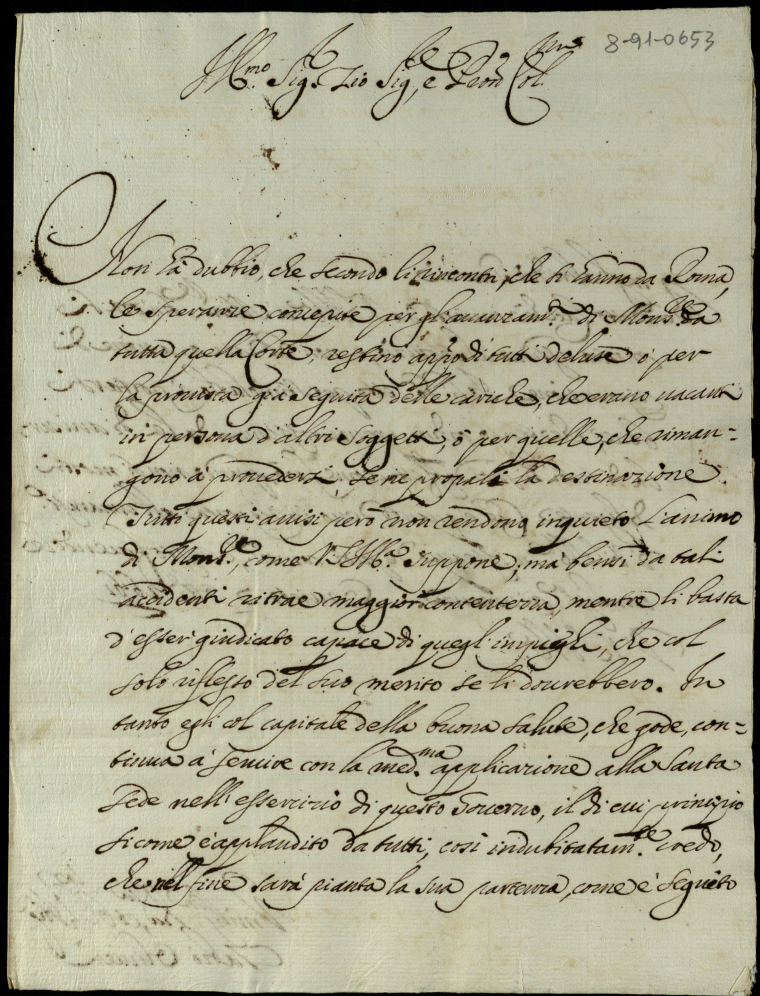 8-91-0653
Ill.mo Sig.r Zio Sig.re, e Pron Col.mo
Non hà dubbio, che secondo li rincontri, che si hanno da Roma,
le speranze concepite per gl'avanzam.ti di Mons.re da
tutta quella Corte, restino app.o di tutti deluse ò per
la provista già seguita delle cariche, che erano vacanti
in persona d'altri soggetti, ò per quelle, che riman-
gono à provedersi, se ne propali la destinazione.
Tutti questi avisi però non rendono inquieto l'animo
di Mons.re, come V.S. Ill.ma suppone, mà bensì da tali
accidenti ritrae maggior contentezza, mentre li basta
d'esser giudicato capace di quegl'impieghi, che col
solo riflesso del suo merito se li dovrebbero. In
tanto egli col capitale della buona salute, che gode, con-
tinua à servire con la med.ma applicazione alla Santa
Sede nell'essercizio di questo Governo, il di cui principio
si come è applaudito da tutti, così indubitatam.te credo,
che nel fine sarà pianta la sua partenza, come è seguito